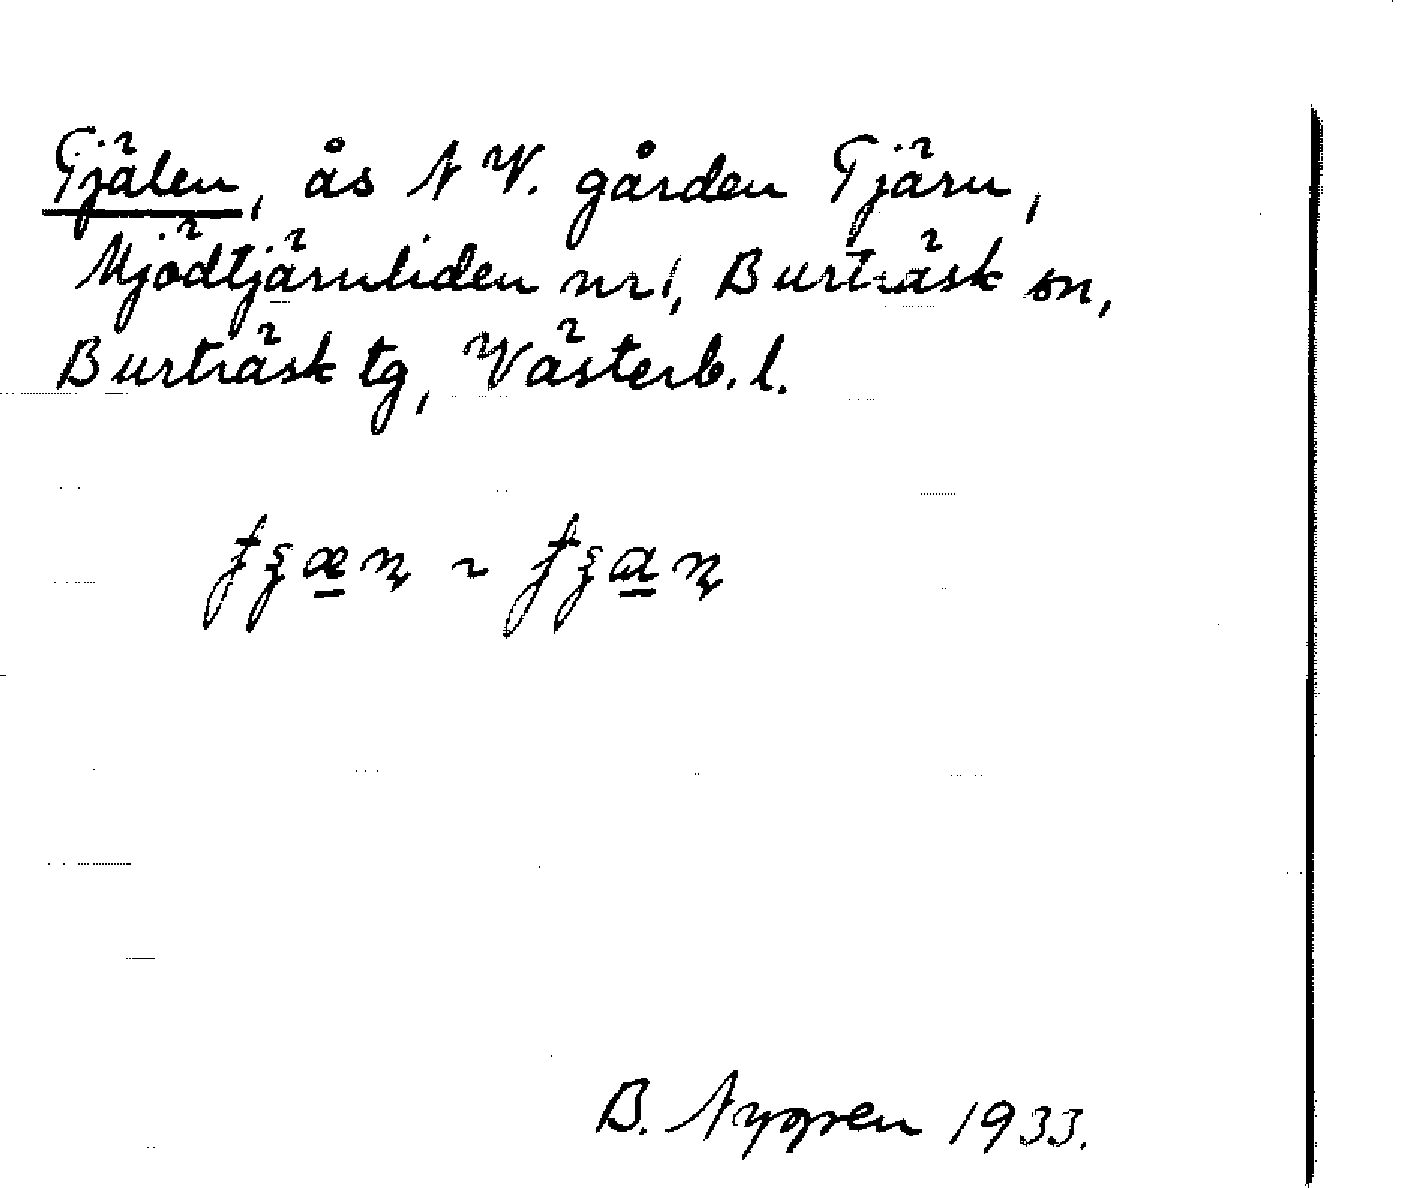 Tjälen, ås N V. gården Tjärn,
Mjödtjärnliden nr 1, Burträsk sn,
Burträsk tg, Västerb. l.
B. Nygren 1933.